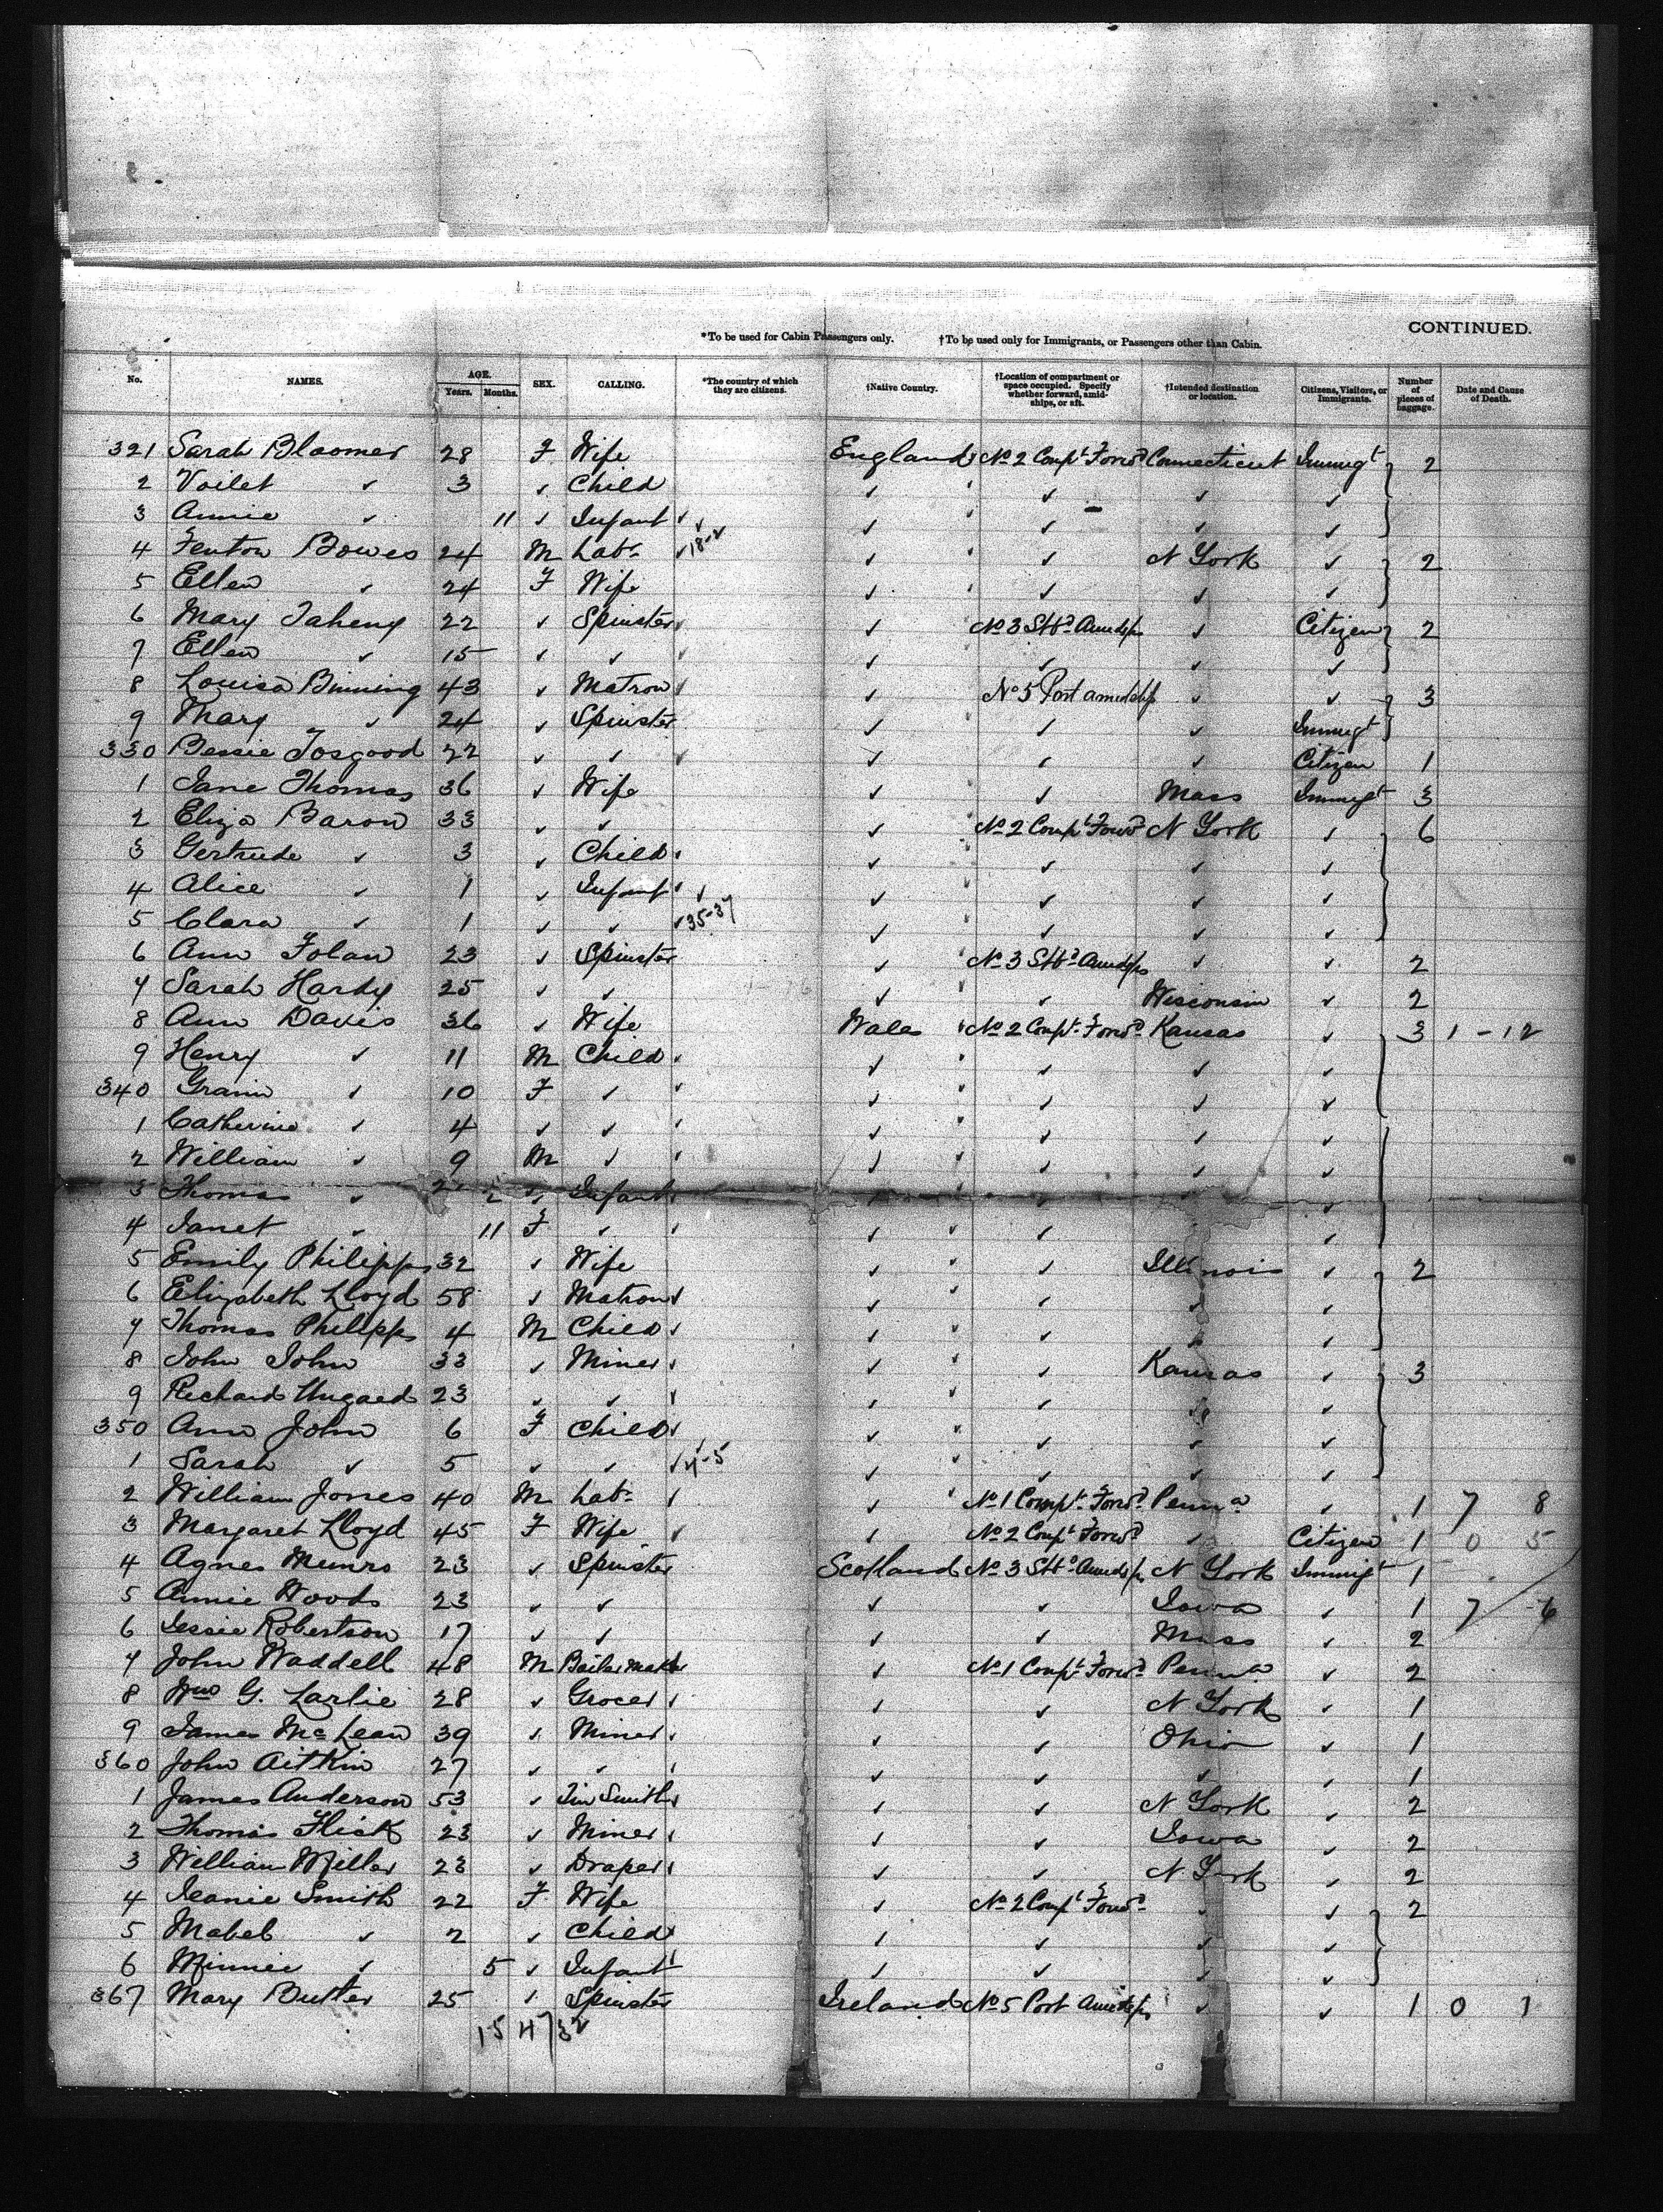 CONTINUED.
*To be used for Cabin Passengers only. †To be used only for Immigrants, or Passengers other than Cabin.
No. NAMES. AGE. Years. Months. SEX. CALLING. *The country of which they are citizens. †Native Country. †Location of compartment or space occupied. Specify whether forward, amidships, or aft. †Intended destination or location. Citizens, Visitors, or Immigrants. Number of pieces of baggage. Date and Cause of Death.
321 Sarah Bloomer 28 F Wife England No 2 Compt Forwd Connecticut Immigt 2
2 Voilet ✓ 3 ✓ Child ✓ ✓ ✓ ✓
3 Annie ✓ 11 ✓ Infant ✓ ✓ ✓ ✓
4 Fenton Bowes 24 M Labr 18-2 ✓ ✓ N York ✓ 2
5 Ellen ✓ 24 F Wife ✓ ✓ ✓ ✓
6 Mary Taheny 22 ✓ Spinster ✓ No 3 Stbd Amidsps ✓ Citizen 2
7 Ellen ✓ 15 ✓ ✓ ✓ ✓ ✓ ✓
8 Louisa Binning 43 ✓ Matron ✓ No 5 Port amidship ✓ ✓ 3
9 Mary ✓ 24 ✓ Spinster ✓ ✓ ✓ Immigt
330 Bessie Tosgood 22 ✓ ✓ ✓ ✓ ✓ Citizen 1
1 Jane Thomas 36 ✓ Wife ✓ ✓ Mass Immigt 3
2 Eliza Baron 33 ✓ ✓ ✓ No 2 Compt Forwd N York ✓ 6
3 Gertrude ✓ 3 ✓ Child ✓ ✓ ✓ ✓
4 Alice ✓ 1 ✓ Infant ✓ ✓ ✓ ✓
5 Clara ✓ 1 ✓ ✓ 35-37 ✓ ✓ ✓ ✓
6 Ann Folan 23 ✓ Spinster ✓ No 3 Stbd Amidsps ✓ ✓ 2
7 Sarah Hardy 25 ✓ ✓ ✓ ✓ Wisconsin ✓ 2
8 Ann Davis 36 ✓ Wife Wales No 2 Compt Forwd Kansas ✓ 3 1-12
9 Henry ✓ 11 M Child ✓ ✓ ✓ ✓
340 ✓ 10 F ✓ ✓ ✓ ✓ ✓
1 Catherine ✓ 4 ✓ ✓ ✓ ✓ ✓ ✓
2 William ✓ 9 M ✓ ✓ ✓ ✓ ✓
3 Thomas ✓ 2 ✓ Infant ✓ ✓ ✓ ✓
4 Janet ✓ 11 F ✓ ✓ ✓ ✓
5 Emily Philipps 32 ✓ Wife ✓ ✓ Illinois ✓ 2
6 Elizabeth Lloyd 58 ✓ Matron ✓ ✓ ✓ ✓
7 Thomas Philipps 4 M Child ✓ ✓ ✓ ✓
8 John John 33 ✓ Miner ✓ ✓ Kansas ✓ 3
9 Richard Hugaed 23 ✓ ✓ ✓ ✓ ✓ ✓
350 Ann John 6 F Child ✓ ✓ ✓ ✓
1 Sarah ✓ 5 ✓ ✓ 4-5 ✓ ✓ ✓ ✓
2 William Jones 40 M Labr ✓ No 1 Compt Forwd Penna ✓ 1 7 8
3 Margaret Lloyd 45 F Wife ✓ No 2 Compt Forwd ✓ Citizen 1 0 5
4 Agnes Munro 23 ✓ Spinster Scotland No 3 Stbd Amidsps N York Immigt 1
5 Annie Woods 23 ✓ ✓ ✓ ✓ Iowa ✓ 1 7 6
6 Jessie Robertson 17 ✓ ✓ ✓ ✓ Mass ✓ 2
7 John Waddell 48 M Boiler Maker ✓ No 1 Compt Forwd Penna ✓ 2
8 Wm G. Larlie 28 ✓ Grocer ✓ ✓ N York ✓ 1
9 James McLean 39 ✓ Miner ✓ ✓ Ohio ✓ 1
360 John Aitkin 27 ✓ ✓ ✓ ✓ ✓ ✓ 1
1 James Anderson 53 ✓ Tin Smith ✓ ✓ N York ✓ 2
2 Thomas Flisk 23 ✓ Miner ✓ ✓ Iowa ✓ 2
3 William Miller 23 ✓ Draper ✓ ✓ N York ✓ 2
4 Jeanie Smith 22 F Wife ✓ No 2 Compt Forwd ✓ ✓ 2
5 Mabel ✓ 2 ✓ Child ✓ ✓ ✓ ✓
6 Minnie ✓ 5 ✓ Infant ✓ ✓ ✓ ✓
367 Mary Butler 25 ✓ Spinster Ireland No 5 Port Amidsps ✓ ✓ 1 0 1
15 47 32